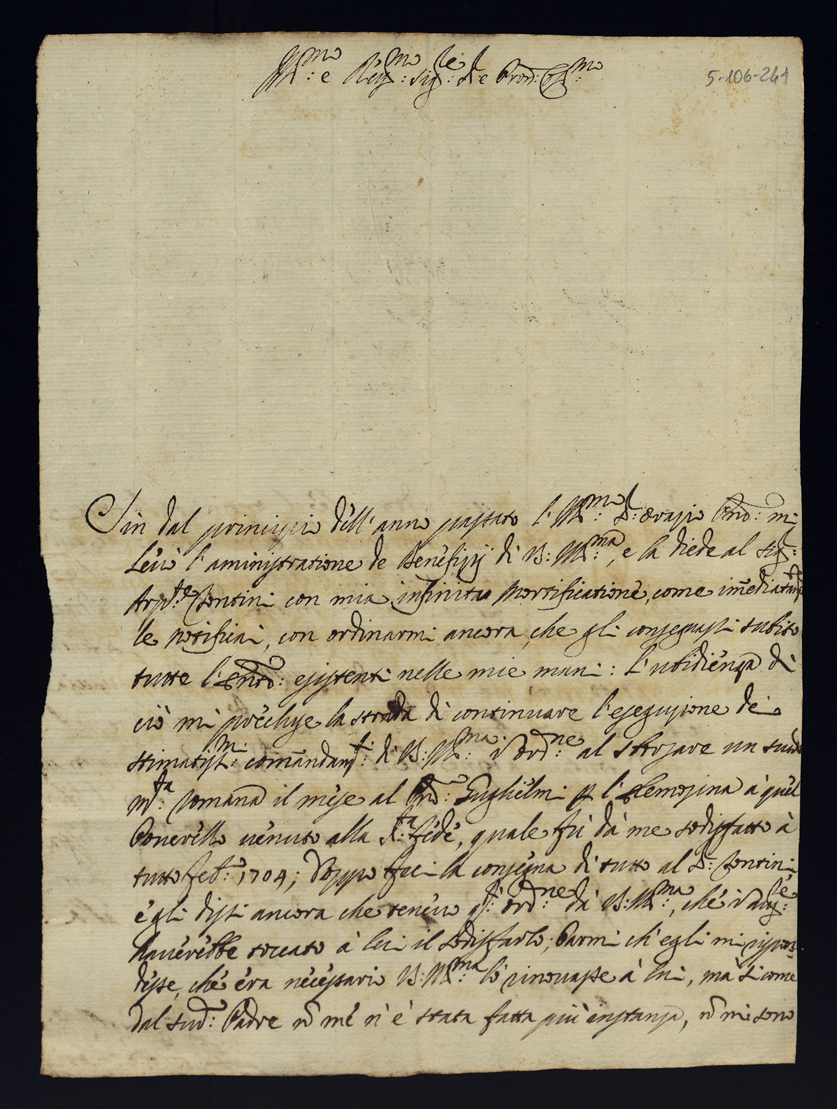 Ill:mo e Rev:mo Sig:re e Pron: Col:mo
5-106-241
Sin dal principio dell'anno passato l'Ill:mo S: Orazio mi
levò l'aministratione de Benefizij di V: Ill:ma, e la diede al Sig:
Contini con mia infinita mortificatione, come im̃ediatam:te
le notificai, con ordinarmi ancora, che gli consegnassi subito
tutte l'Entr: esistenti nelle mie mani: L'ubidienza di
ciò mi prechiuse la strada di continuare l'esequzione de
stimatiss:mi comandam:ti di V: Ill:ma d'ord:ne al sborsare un scudo
m:ta romana il mese al Guglielmi p l'elemosina à quel
Poverello venuto alla S:ta fede, quale fù da me sodisfatto à
tutto feb: 1704; Doppo feci la consegna di tutto al S: Contini,
e gli dissi ancora che tenevo q:to ord:ne da V: Ill:ma, che
haverebbe toccato à lui il sodisfarlo; Parmi ch'egli mi rispon
desse, che era necessario V: Ill:ma lo rinovasse à lui, ma si come
dal sud: Padre nõ mè n'è stata fatta più instanza, nõ mi sono